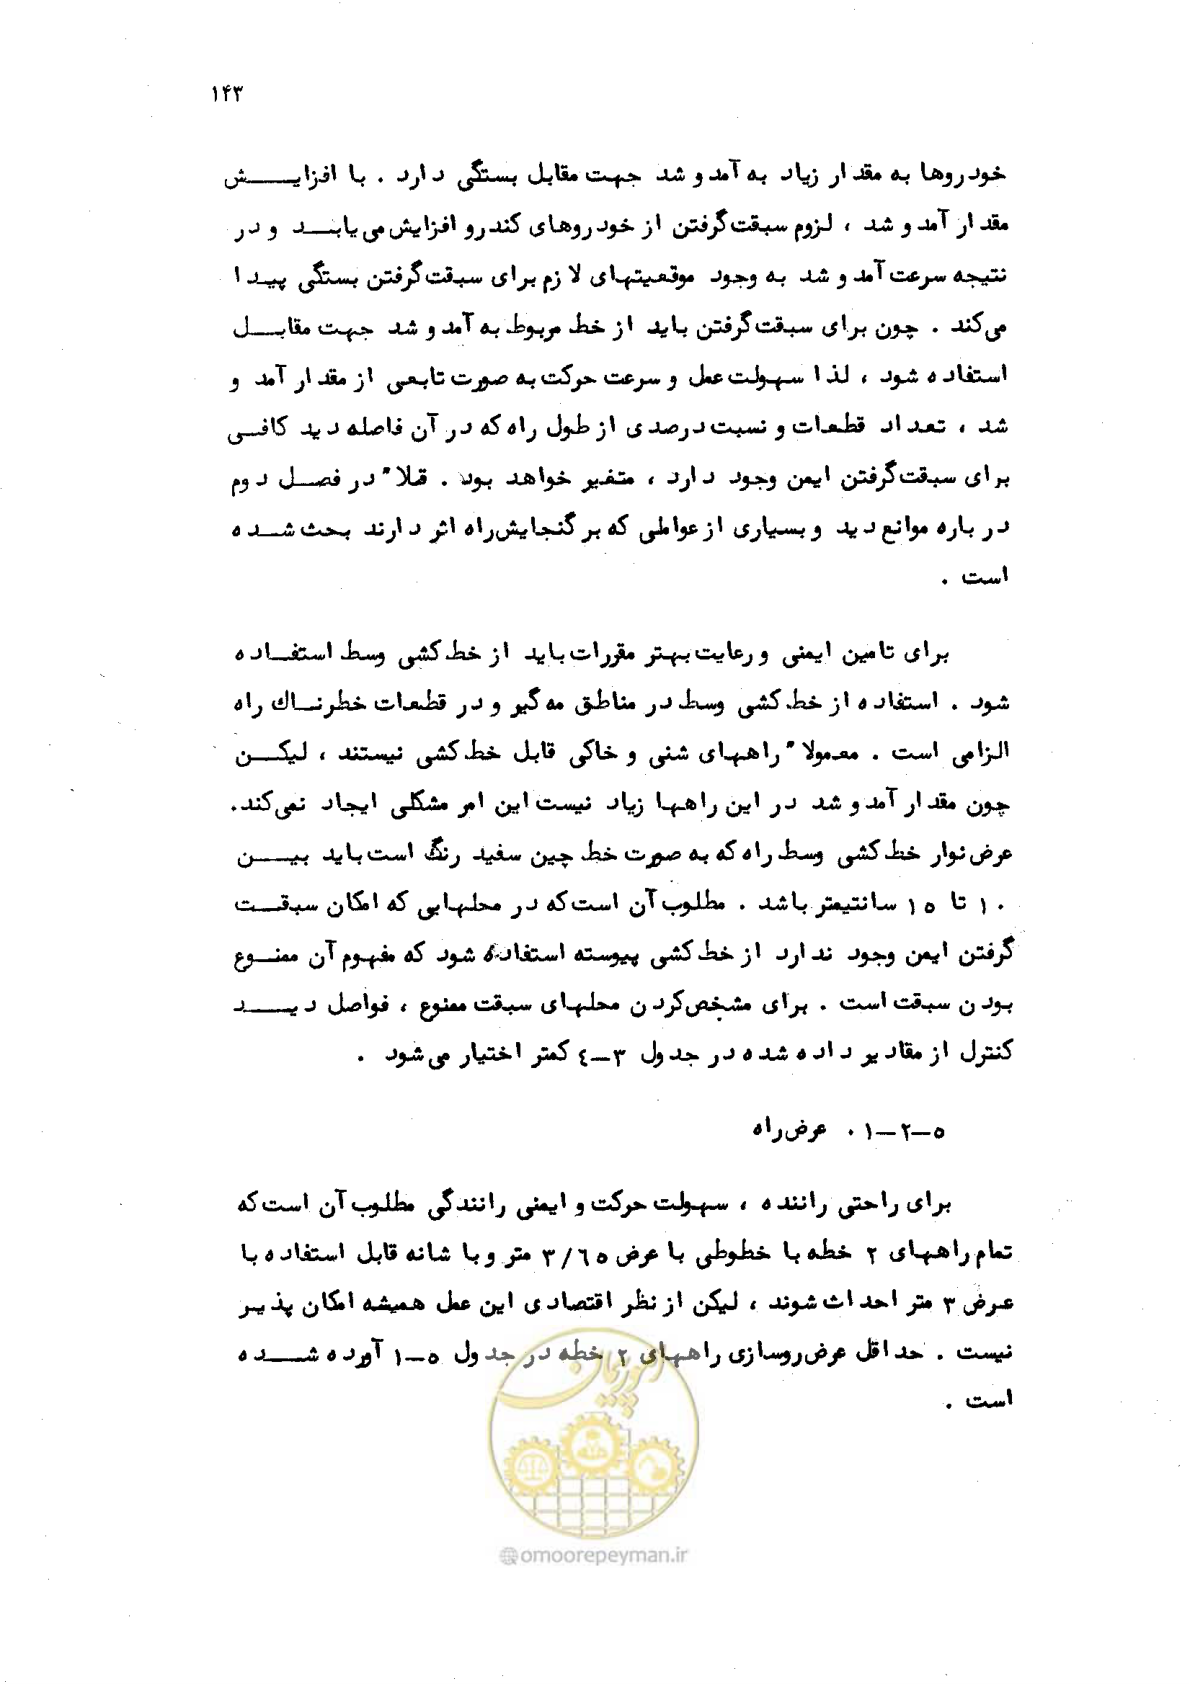 ۱۴۳
خودروها به مقدار زیاد به آمد و شد جهت مقابل بستگی دارد . با افزایش
مقدار آمد و شد ، لزوم سبقت‌گرفتن از خودروهای کندرو افزایش می‌یابد و در
نتیجه سرعت آمد و شد به وجود موقعیتهای لازم برای سبقت‌گرفتن بستگی پیدا
می‌کند . چون برای سبقت‌گرفتن باید از خط مربوط به آمد و شد جهت مقابل
استفاده شود ، لذا سهولت عمل و سرعت حرکت به صورت تابعی از مقدار آمد و
شد ، تعداد قطعات و نسبت درصدی از طول راه که در آن فاصله دید کافی
برای سبقت‌گرفتن ایمن وجود دارد ، متغیر خواهد بود . قبلا" در فصل دوم
درباره موانع دید و بسیاری از عواملی که بر گنجایش راه اثر دارند بحث شده
است .
برای تامین ایمنی و رعایت بهتر مقررات باید از خط‌کشی وسط استفاده
شود . استفاده از خط‌کشی وسط در مناطق مه‌گیر و در قطعات خطرناک راه
الزامی است . معمولا" راههای شنی و خاکی قابل خط‌کشی نیستند ، لیکن
چون مقدار آمد و شد در این راهها زیاد نیست این امر مشکلی ایجاد نمی‌کند.
عرض نوار خط‌کشی وسط راه که به صورت خط چین سفید رنگ است باید بین
۱۰ تا ۱۵ سانتیمتر باشد . مطلوب آن است که در محلهایی که امکان سبقت
گرفتن ایمن وجود ندارد از خط‌کشی پیوسته استفاده شود که مفهوم آن ممنوع
بودن سبقت است . برای مشخص‌کردن محلهای سبقت ممنوع ، فواصل دید
کنترل از مقادیر داده شده در جدول ۳-۴ کمتر اختیار می‌شود .
۵-۲-۱ . عرض راه
برای راحتی راننده ، سهولت حرکت و ایمنی رانندگی مطلوب آن است که
تمام راههای ۲ خطه با خطوطی با عرض ۳/۶۵ متر و با شانه قابل استفاده با
عرض ۳ متر احداث شوند ، لیکن از نظر اقتصادی این عمل همیشه امکان پذیر
نیست . حداقل عرض روسازی راههای ۲ خطه در جدول ۵-۱ آورده شده
است .
امور پیمان
@omoorepeyman.ir